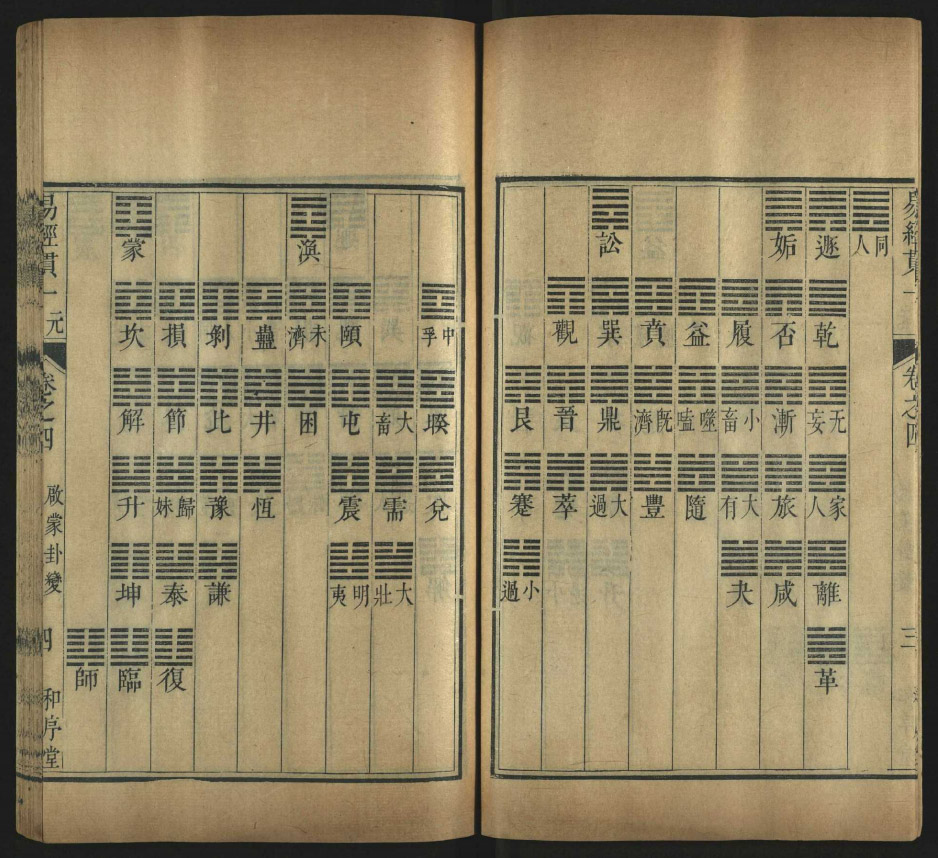 易經貫一 卷之四 三
同人
遯 乾 无妄 家人 離 革
姤 否 漸 旅 咸
履 小畜 大有 夬
益 噬嗑 隨
賁 既濟 豐
訟 巽 鼎 大過
觀 晉 萃
艮 蹇 小過
中孚 睽 兌
大畜 需 大壯
頤 屯 震 明夷
渙 未濟 困
蠱 井 恆
剝 比 豫 謙
損 節 歸妹 泰 復
蒙 坎 解 升 坤 臨
師
易經貫一 元 卷之四 啟蒙卦變 四 和序堂